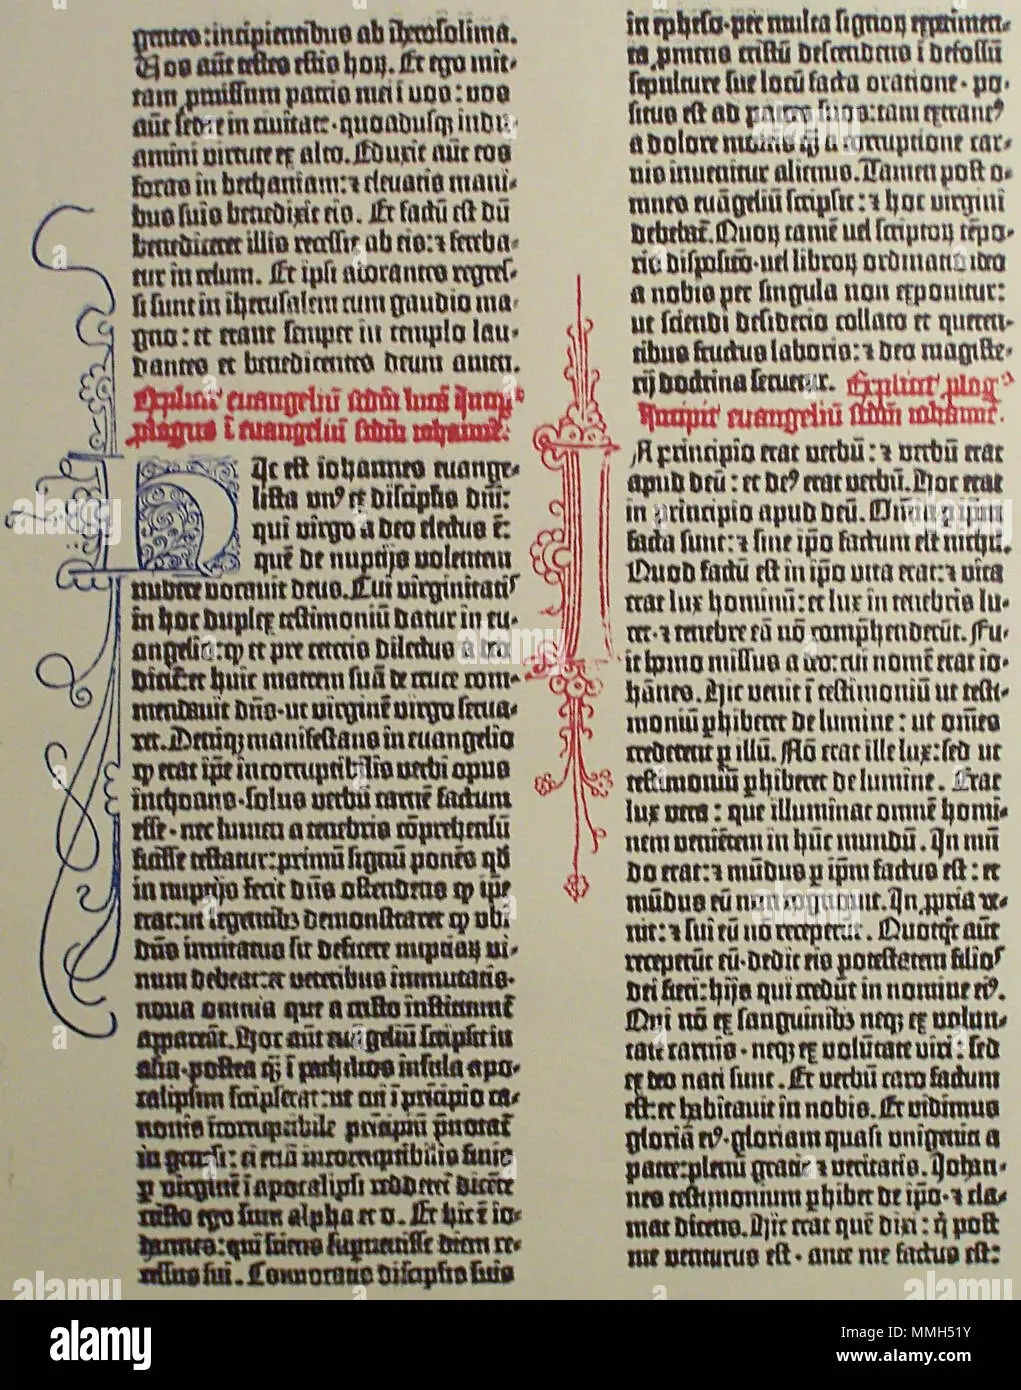 gentes: incipientibus ab iherosolima.
Vos aūt testes estis hoꝝ. Et ego mit-
tam ꝓmissum patris mei ī vos: vos
aūt sedete in civitate · quoadusqꝫ indu-
amini virtute ex alto. Eduxit aūt eos
foras in bethaniam: ⁊ elevatis mani-
bus suis benedixit eis. Et factū est dū
benediceret illis recessit ab eis: ⁊ fereba-
tur in celum. Et ipsi adorantes regres-
si sunt in iherusalem cum gaudio ma-
gno: et erant semper in templo lau-
dantes et benedicentes deum amen.
Explicit euangeliū scdm̄ lucā Incipꝰ
plogus ī euangeliū scdm̄ iohannē.
Hic est iohannes euange-
lista unꝰ ex discipl̓is dn̄i:
qui virgo a deo electus ē:
quē de nuptijs volentem
nubere vocavit deus. Cui virginitatis
in hoc duplex testimoniū datur in eu-
angelio: ꝙ et pre ceteris dilectus a deo
dicit̄: et huic matrem suā de cruce com-
mendavit dn̄s · ut virginē virgo serva-
ret. Deniqꝫ manifestans in euangelio
ꝙ erat ip̄e incorruptibilis verbi opus
inchoans · solus verbū carnē factum
esse · nec lumen a tenebris cōprehensū
fuisse testatur: primū signū ponēs qd̄
in nuptijs fecit dn̄s ostendens ꝙ ip̄e
erat: ut legentibꝫ demonstraret ꝙ ubi
dn̄s invitatus sit deficere nuptiaꝝ vi-
num debeat: et veteribus immutatis ·
nova omnia que a cristo instituunt̄
appareāt. Hoc aūt euāgeliū scripsit in
asia · postea qꝫ ī pathmos insula apo-
calipsim scripserat: ut cui ī principio ca-
nonis īcorruptibile principiū p̄notat̄
in genesi: ei etiā incorruptibilis finis
ꝑ virginē ī apocalipsi redderet̄ dicēte
cristo ego sum alpha et o. Et hic ē io-
hannes: qui sciens supervenisse diem re-
cessus sui. Convocatis discipl̓is suis
in epheso · per multa signoꝝ experimen-
ta ꝓmens cristū descendens ī defossū
sepulture sue locū facta oratione · po-
situs est ad patres suos: tam extraneꝰ
a dolore mortis qꝫ a corruptione car-
nis invenitur alienus. Tamen post o-
mnes euāgeliū scripsit: ⁊ hoc virgini
debebat̄. Quoꝝ tamē vel scriptoꝝ tēpo-
ris disposicō · vel libroꝝ ordinatio ideo
a nobis per singula non exponitur:
ut sciendi desiderio collato et queren-
tibus fructus laboris: ⁊ deo magiste-
rij doctrina servetur. Explicit plogꝰ
Incipit euangeliū scdm̄ iohannē.
In principio erat verbū: ⁊ verbū erat
apud deū: et deꝰ erat verbū. Hoc erat
in principio apud deū. Om̄ia ꝑ ip̄m
facta sunt: ⁊ sine ip̄o factum est nichil.
Quod factū est in ip̄o vita erat: ⁊ vita
erat lux hominū: et lux in tenebris lu-
cet · ⁊ tenebre eā nō comp̄henderūt. Fu-
it homo missus a deo: cui nomē erat io-
hānes. Hic venit ī testimoniū ut testi-
moniū ꝑhiberet de lumine: ut om̄es
crederent ꝑ illū. Nō erat ille lux: sed ut
testimoniū ꝑhiberet de lumine. Erat
lux vera: que illuminat omnē homi-
nem veniētem in hūc mundū. In mū-
do erat: ⁊ mūdus ꝑ ip̄m factus est: et
mūdus eū non cognovit. In ꝓpria ve-
nit: ⁊ sui eū nō receperūt. Quotqͦt aūt
receperūt eū · dedit eis potestatem filios
dei fieri: hijs qui credūt in nomine eiꝰ.
Qui nō ex sanguinibꝫ neqꝫ ex volun-
tate carnis · neqꝫ ex volūtate viri: sed
ex deo nati sunt. Et verbū caro factum
est: et habitavit in nobis. Et vidimus
gloriā eiꝰ · gloriam quasi unigeniti a
patre: plenū gratie ⁊ veritatis. Johan-
nes testimonium ꝑhibet de ip̄o · ⁊ cla-
mat dicens. Hic erat quē dixi: q̄ post
me venturus est · ante me factus est:
alamy
Image ID: MMH51Y
www.alamy.com